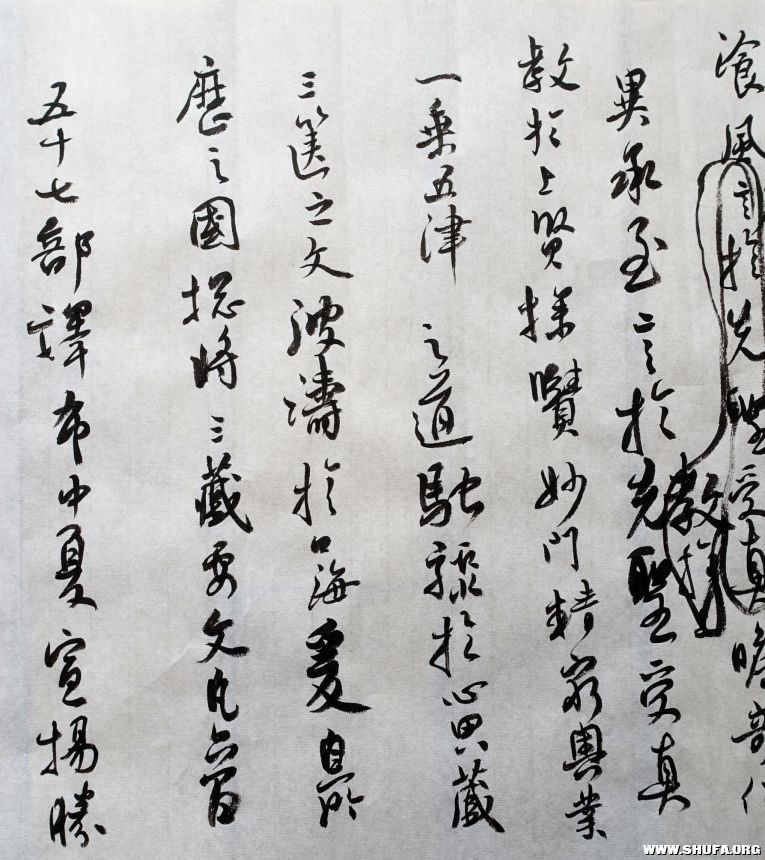 飡風言於先聖受真瞻奇仰
教探
異承至言於先聖受真
教於上賢探賾妙門精窮奧業
一乘五津之道馳驟於心田八藏
三篋之文波濤於口海爰自所
歷之國揔將三藏要文凡六百
五十七部譯布中夏宣揚勝
WWW.SHUFA.ORG